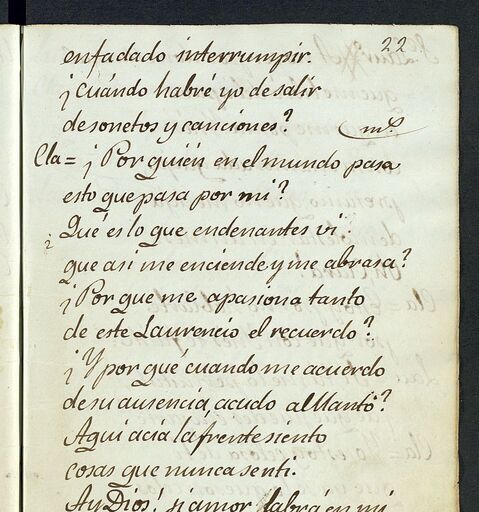 22
enfadado interrumpir.
¡Cuándo habré yo de salir
de sonetos y canciones?
Cla = ¡Por quién en el mundo pasa
esto que pasa por mi?
¿Qué es lo que endenantes vi
que asi me enciende y me abrasa?
¡Por que me apasiona tanto
de este Laurencio el recuerdo?
¡Y por qué cuando me acuerdo
de su ausencia, acudo al llanto?
Aqui acia la frente siento
cosas que nunca senti.
Ay Dios! si amor labrá en mi